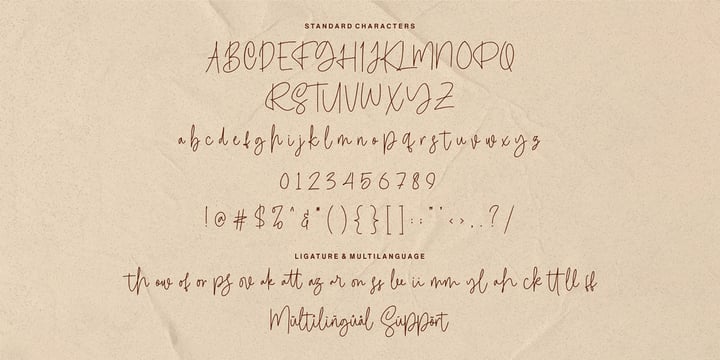 STANDARD CHARACTERS
ABCDEFGHIJKLMNOPQ
RSTUVWXYZ
a b c d e f g h i j k l m n o p q r s t u v w x y z
0 1 2 3 4 5 6 7 8 9
! @ # $ % ^ & * ( ) { } [ ] : ; " ' < > , . ? /
LIGATURE & MULTILANGUAGE
th ow of or ps ov ak att az ar on ss ii mm yl ah ck tt ll ff
Multilingual Support